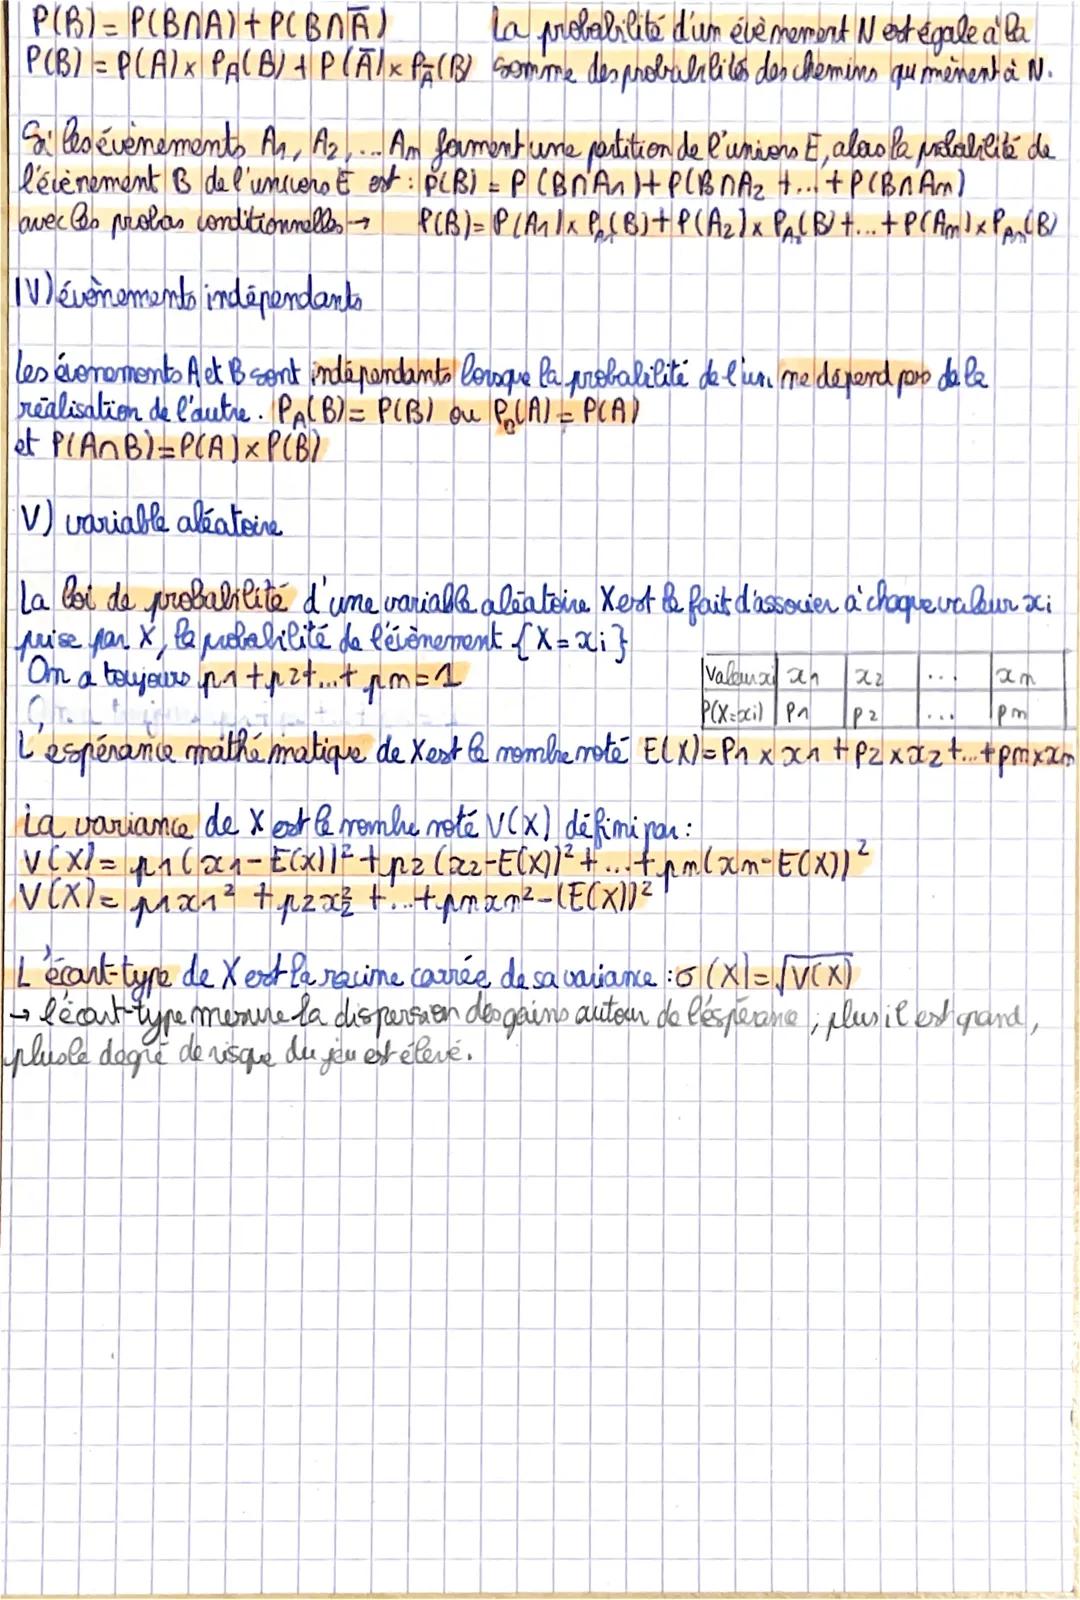 P(B) = P(B∩A) + P(B∩Ā)
La probabilité d'un évènement N est égale à la
P(B) = P(A) × P_A(B) + P(Ā) × P_Ā(B)
somme des probabilités des chemins qui mènent à N.
Si les évènements A1, A2, ... An forment une partition de l'univers E, alors la probabilité de
l'évènement B de l'univers E est : P(B) = P(B∩A1) + P(B∩A2 + ... + P(B∩An)
avec les probas conditionnelles → P(B) = P(A1) × P_A1(B) + P(A2) × P_A2(B) + ... + P(An) × P_An(B)
IV) évènements indépendants
Les évènements A et B sont indépendants lorsque la probabilité de l'un ne dépend pas de la
réalisation de l'autre. P_A(B) = P(B) ou P_B(A) = P(A)
et P(A∩B) = P(A) × P(B)
V) variable aléatoire
La loi de probabilité d'une variable aléatoire X est le fait d'associer à chaque valeur xi
prise par X, la probabilité de l'évènement {X = xi}
On a toujours p1 + p2 + ... + pn = 1
Valeur xi x1 x2 ... xn
P(X=xi) p1 p2 ... pn
L'espérance mathématique de X est le nombre noté E(X) = p1 × x1 + p2 × x2 + ... + pn × xn
La variance de X est le nombre noté V(X) défini par :
V(X) = p1(x1 - E(X))² + p2(x2 - E(X))² + ... + pn(xn - E(X))²
V(X) = p1x1² + p2x2² + ... + pnxn² - (E(X))²
L'écart-type de X est la racine carrée de sa variance : σ(X) = √V(X)
→ l'écart-type mesure la dispersion des gains autour de l'éspérance ; plus il est grand,
plus le degré de risque du jeu est élevé.